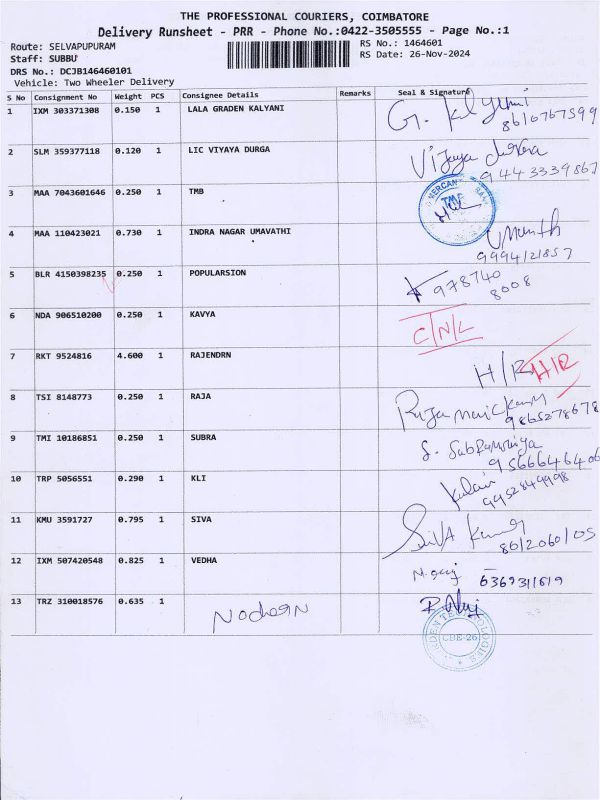 THE PROFESSIONAL COURIERS, COIMBATORE
Delivery Runsheet - PRR - Phone No.:0422-3505555 - Page No.:1
Route: SELVAPUPURAM RS No.: 1464601
Staff: SUBBU RS Date: 26-Nov-2024
DRS No.: DCJB146460101
Vehicle: Two Wheeler Delivery
S No Consignment No Weight PCS Consignee Details Remarks Seal & Signature
1 IXM 303371308 0.150 1 LALA GRADEN KALYANI
8610767599
2 SLM 359377118 0.120 1 LIC VIYAYA DURGA Vijaya durga
3 MAA 7043601646 0.250 1 TMB
TMB
4 MAA 110423021 0.730 1 INDRA NAGAR UMAVATHI
9994121857
5 BLR 4150398235 0.250 1 POPULARSION 978740
8008
6 NDA 906510200 0.250 1 KAVYA C/N/L
7 RKT 9524816 4.600 1 RAJENDRN H/R H/R
8 TSI 8148773 0.250 1 RAJA Raja
9865278678
9 TMI 10186851 0.250 1 SUBRA
9566646406
10 TRP 5056551 0.290 1 KLI
9952849998
11 KMU 3591727 0.795 1 SIVA Siva Kumar
12 IXM 507420548 0.825 1 VEDHA 6369311619
13 TRZ 310018576 0.635 1
CBE-26